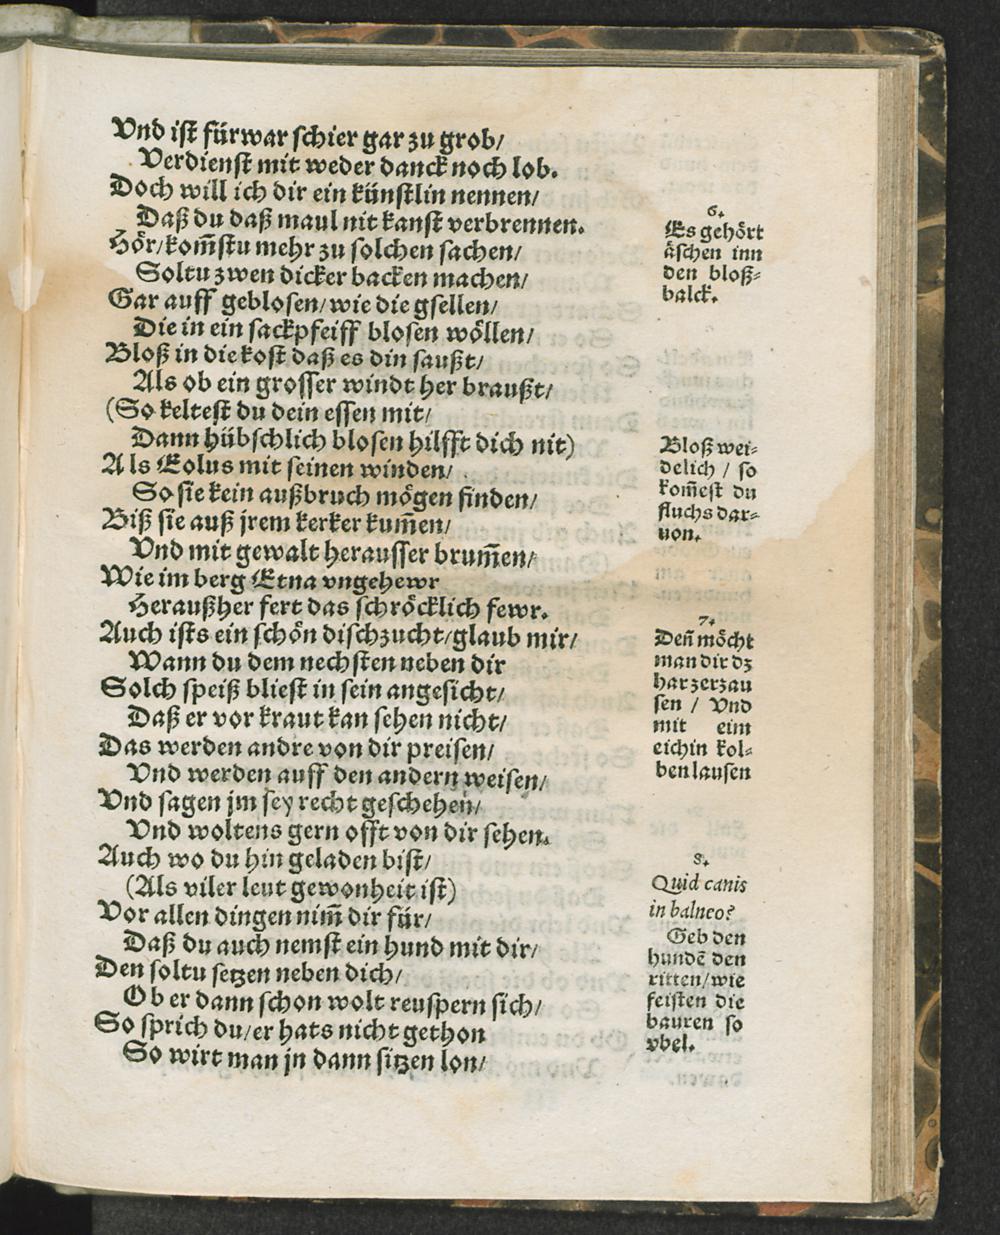 Vnd ist fürwar schier gar zu grob/
Verdienst mit weder danck noch lob.
Doch will ich dir ein künstlin nennen/
Daß du daß maul nit kanst verbrennen.
Hör/kom̃stu mehr zu solchen sachen/
Soltu zwen dicker backen machen/
Gar auff geblosen/ wie die gsellen/
Die in ein sackpfeiff blosen wöllen/
Bloß in die kost daß es din saußt/
Als ob ein grosser windt her braußt/
(So keltest du dein essen mit/
Dann hübschlich blosen hilfft dich nit)
Als Eolus mit seinen winden/
So sie kein außbruch mögen finden/
Biß sie auß jrem kerker kum̃en/
Vnd mit gewalt herausser brum̃en/
Wie im berg Etna vngehewr
Heraußher fert das schröcklich fewr.
Auch ists ein schön dischzucht/glaub mir/
Wann du dem nechsten neben dir
Solch speiß bliest in sein angesicht/
Daß er vor kraut kan sehen nicht/
Das werden andre von dir preisen/
Vnd werden auff den andern weisen/
Vnd sagen jm sey recht geschehen/
Vnd woltens gern offt von dir sehen.
Auch wo du hin geladen bist/
(Als viler leut gewonheit ist)
Vor allen dingen nim̃ dir für/
Daß du auch nemst ein hund mit dir/
Den soltu setzen neben dich/
Ob er dann schon wolt reuspern sich/
So sprich du/er hats nicht gethon
So wirt man jn dann sitzen lon/
6.
Es gehört
äschen inn
den bloß=
balck.
Bloß wei=
delich / so
kom̃est du
fluchs dar=
uon.
7.
Deñ möcht
man dir dz
har zerzau
sen / Vnd
mit eim
eichin kol=
ben lausen
8.
Quid canis
in balneo?
Geb den
hundē den
ritten/wie
feisten die
bauren so
vbel.